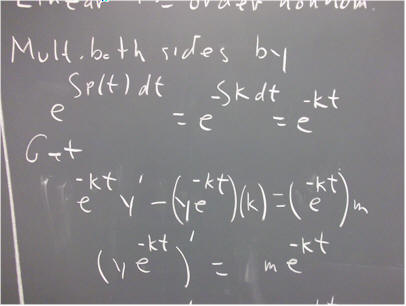 Linear 1st order nonhom.
Mult. both sides by
e^{∫p(t)dt} = e^{-∫kdt} = e^{-kt}
Get
e^{-kt} y' - (ye^{-kt})(k) = (e^{-kt})m
(ye^{-kt})' = me^{-kt}